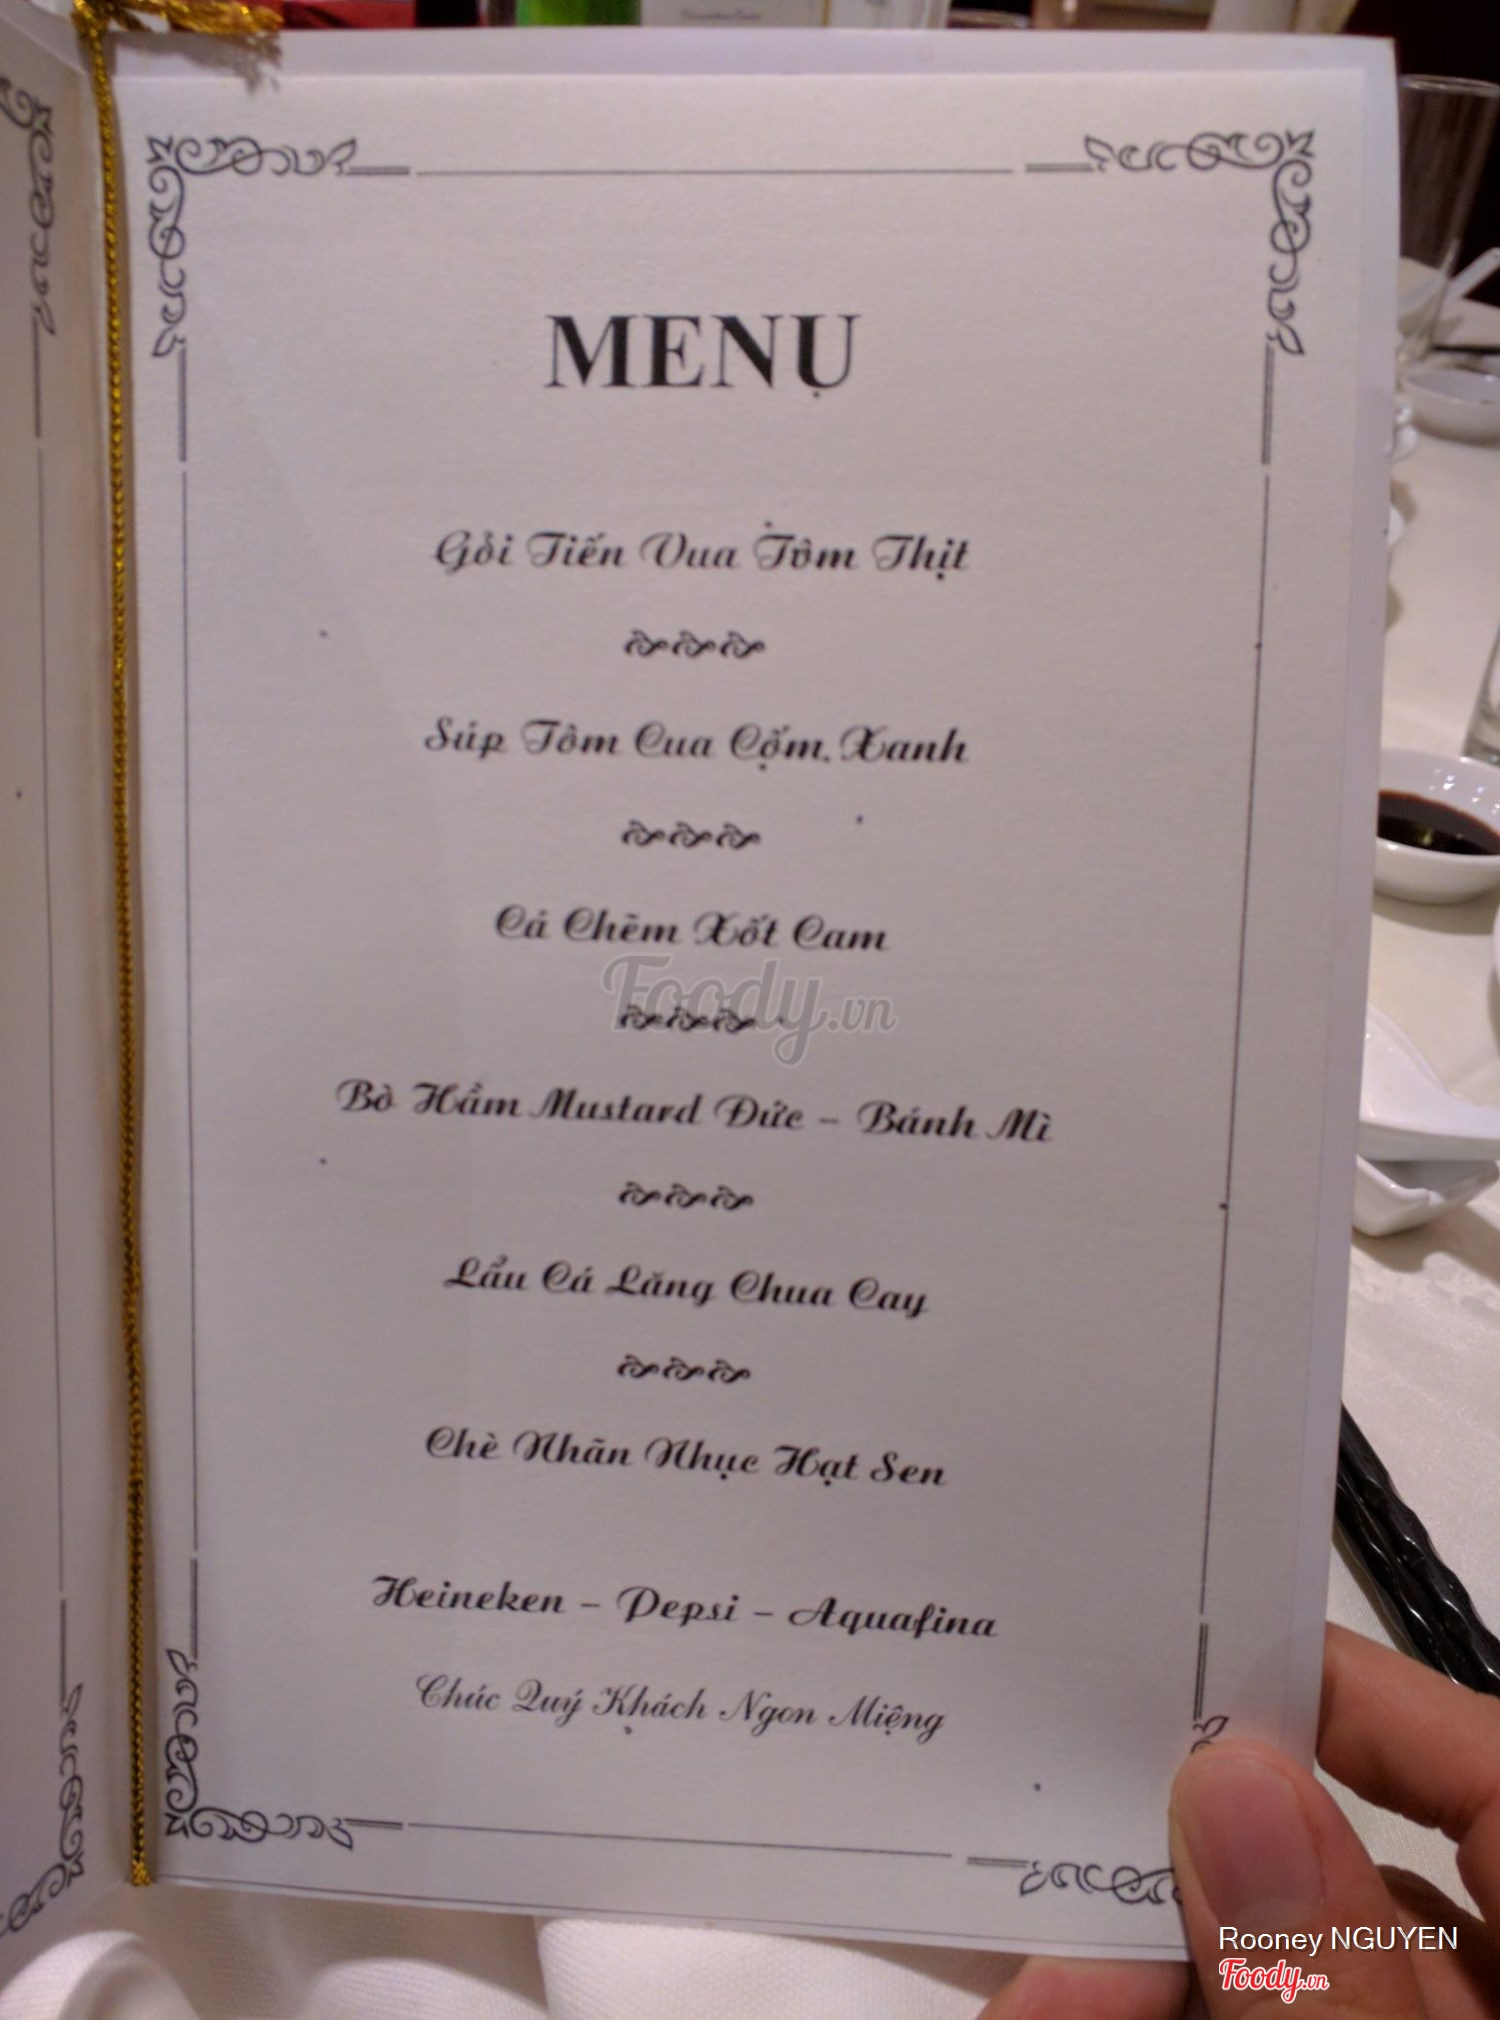 MENU
Gỏi Tiến Vua Tôm Thịt
Súp Tôm Cua Cốm Xanh
Cá Chẽm Xốt Cam
Foody.vn
Bò Hầm Mustard Đức - Bánh Mì
Lẩu Cá Lăng Chua Cay
Chè Nhãn Nhục Hạt Sen
Heineken - Pepsi - Aquafina
Chúc Quý Khách Ngon Miệng
Rooney NGUYEN
Foody.vn